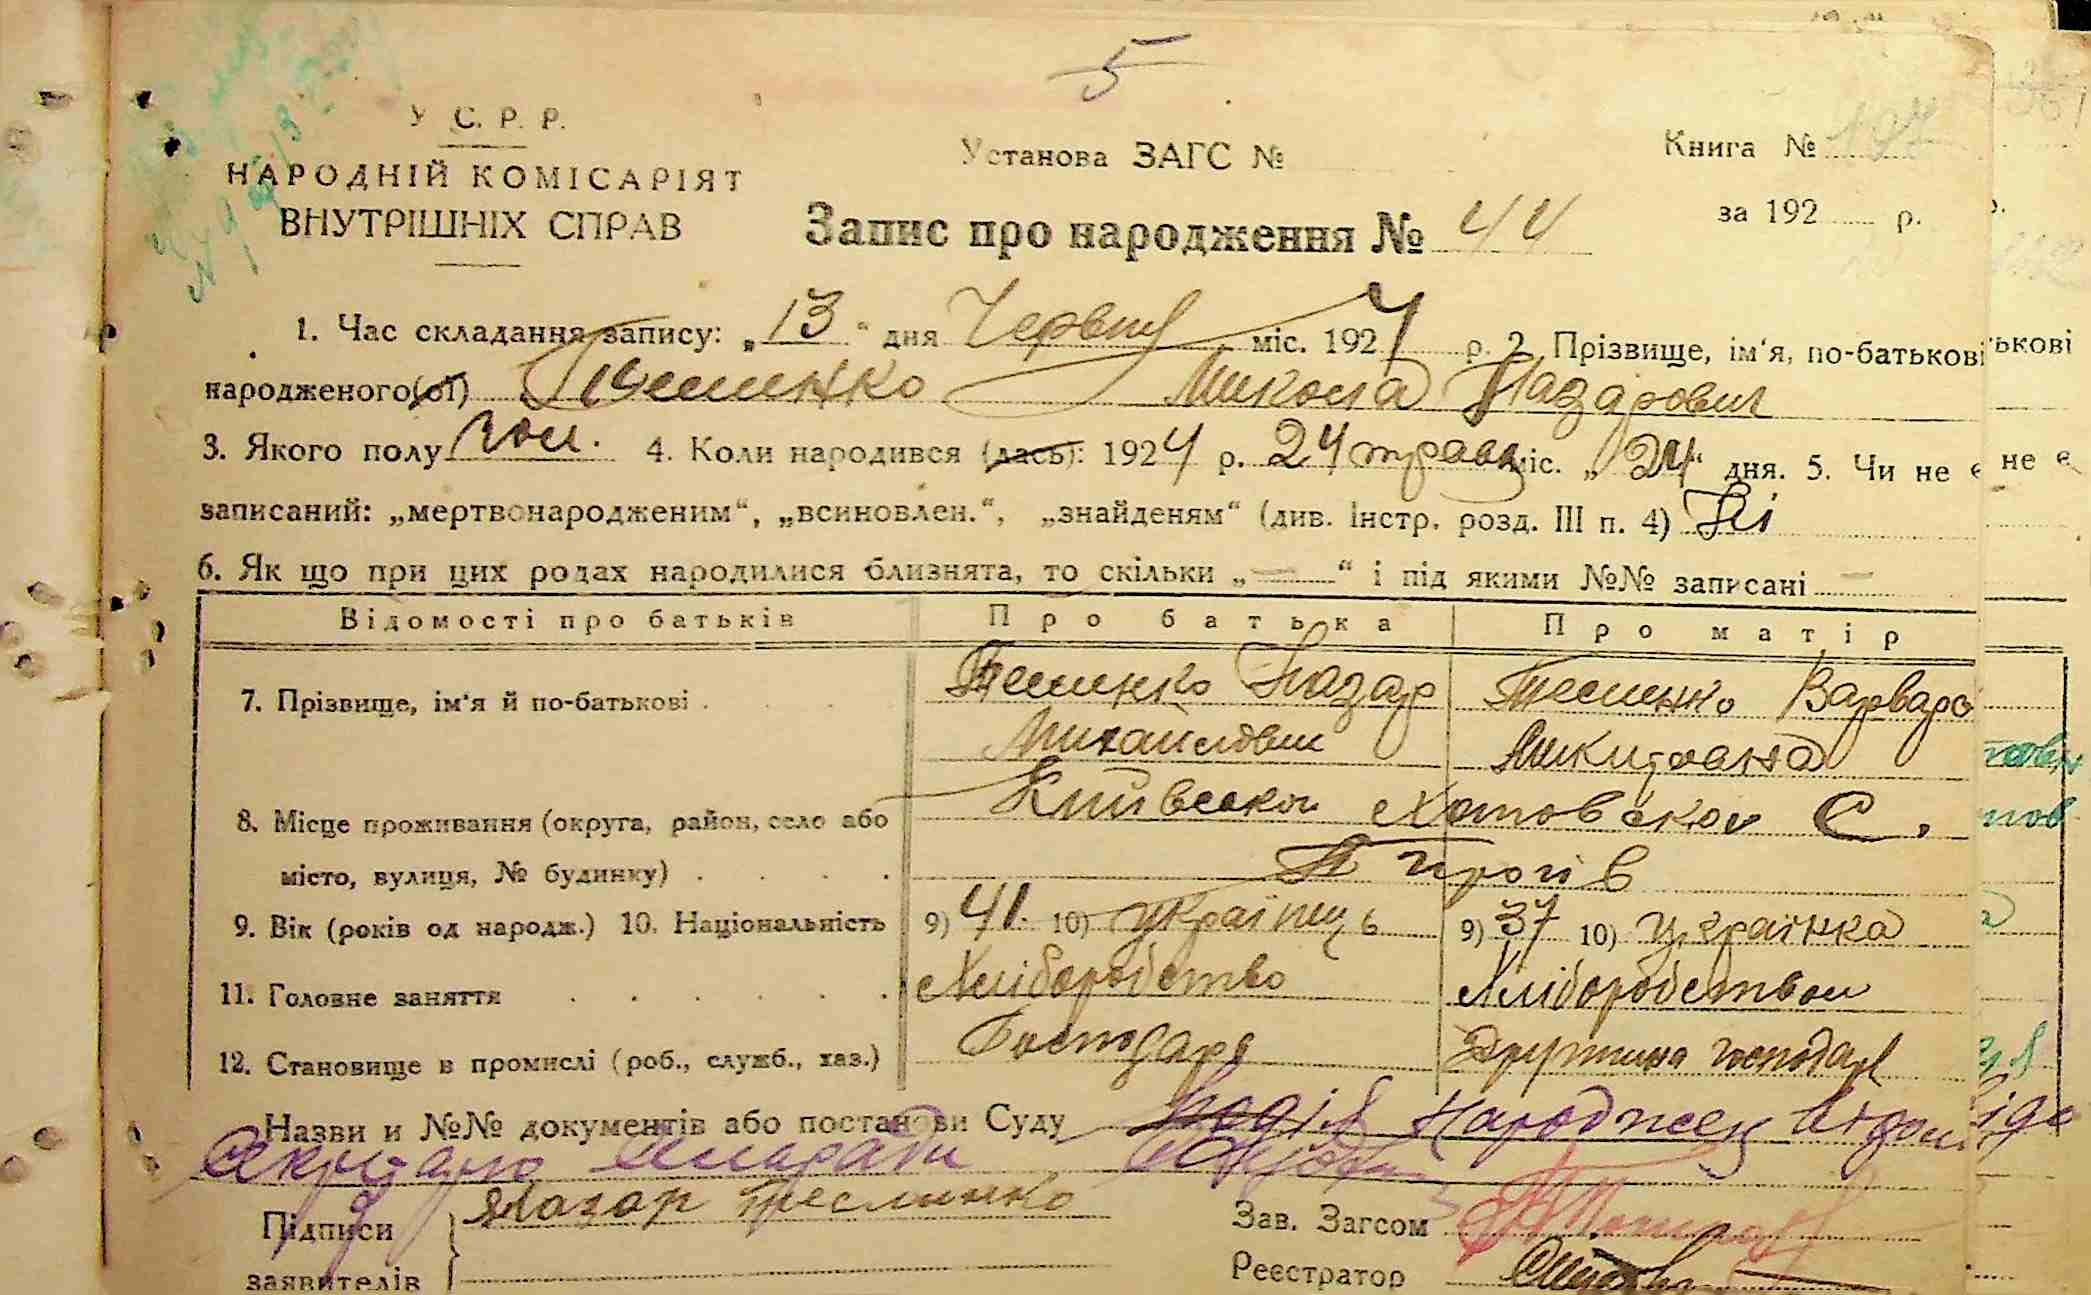 5
У. С. Р. Р.
НАРОДНІЙ КОМІСАРІЯТ
ВНУТРІШНІХ СПРАВ
Установа ЗАГС №
Книга № 197
за 192 р.
Запис про народження № 44
1. Час складання запису: „13“ дня Червня міс. 1924 р. 2. Прізвище, ім'я, по-батькові
народженого(ої) Теслинко Микола Назарович
3. Якого полу чол. 4. Коли народився (лась): 1924 р. 24 травня міс. „24“ дня. 5. Чи не є
записаний: „мертвонародженим“, „всиновлен.“, „знайденям“ (див. Інстр. розд. III п. 4) Ні
6. Як що при цих родах народилися близнята, то скільки „—“ і під якими №№ записані —
Відомості про батьків Про батька Про матір
7. Прізвище, ім'я й по-батькові Теслинко Назар Михайлович Теслинко Варвара Микитовна
8. Місце проживання (округа, район, село або
місто, вулиця, № будинку) Київської Хотовської С. Пирогів
9. Вік (років од народж.) 10. Національність 9) 41. 10) Українець 9) 37 10) Українка
11. Головне заняття Хліборобство Хліборобством
12. Становище в промислі (роб., служб., хаз.) Господарь Дружина господаря
Назви и №№ документів або постанови Суду народжен
Підписи Назар Теслинко
заявителів
Зав. Загсом
Реєстратор